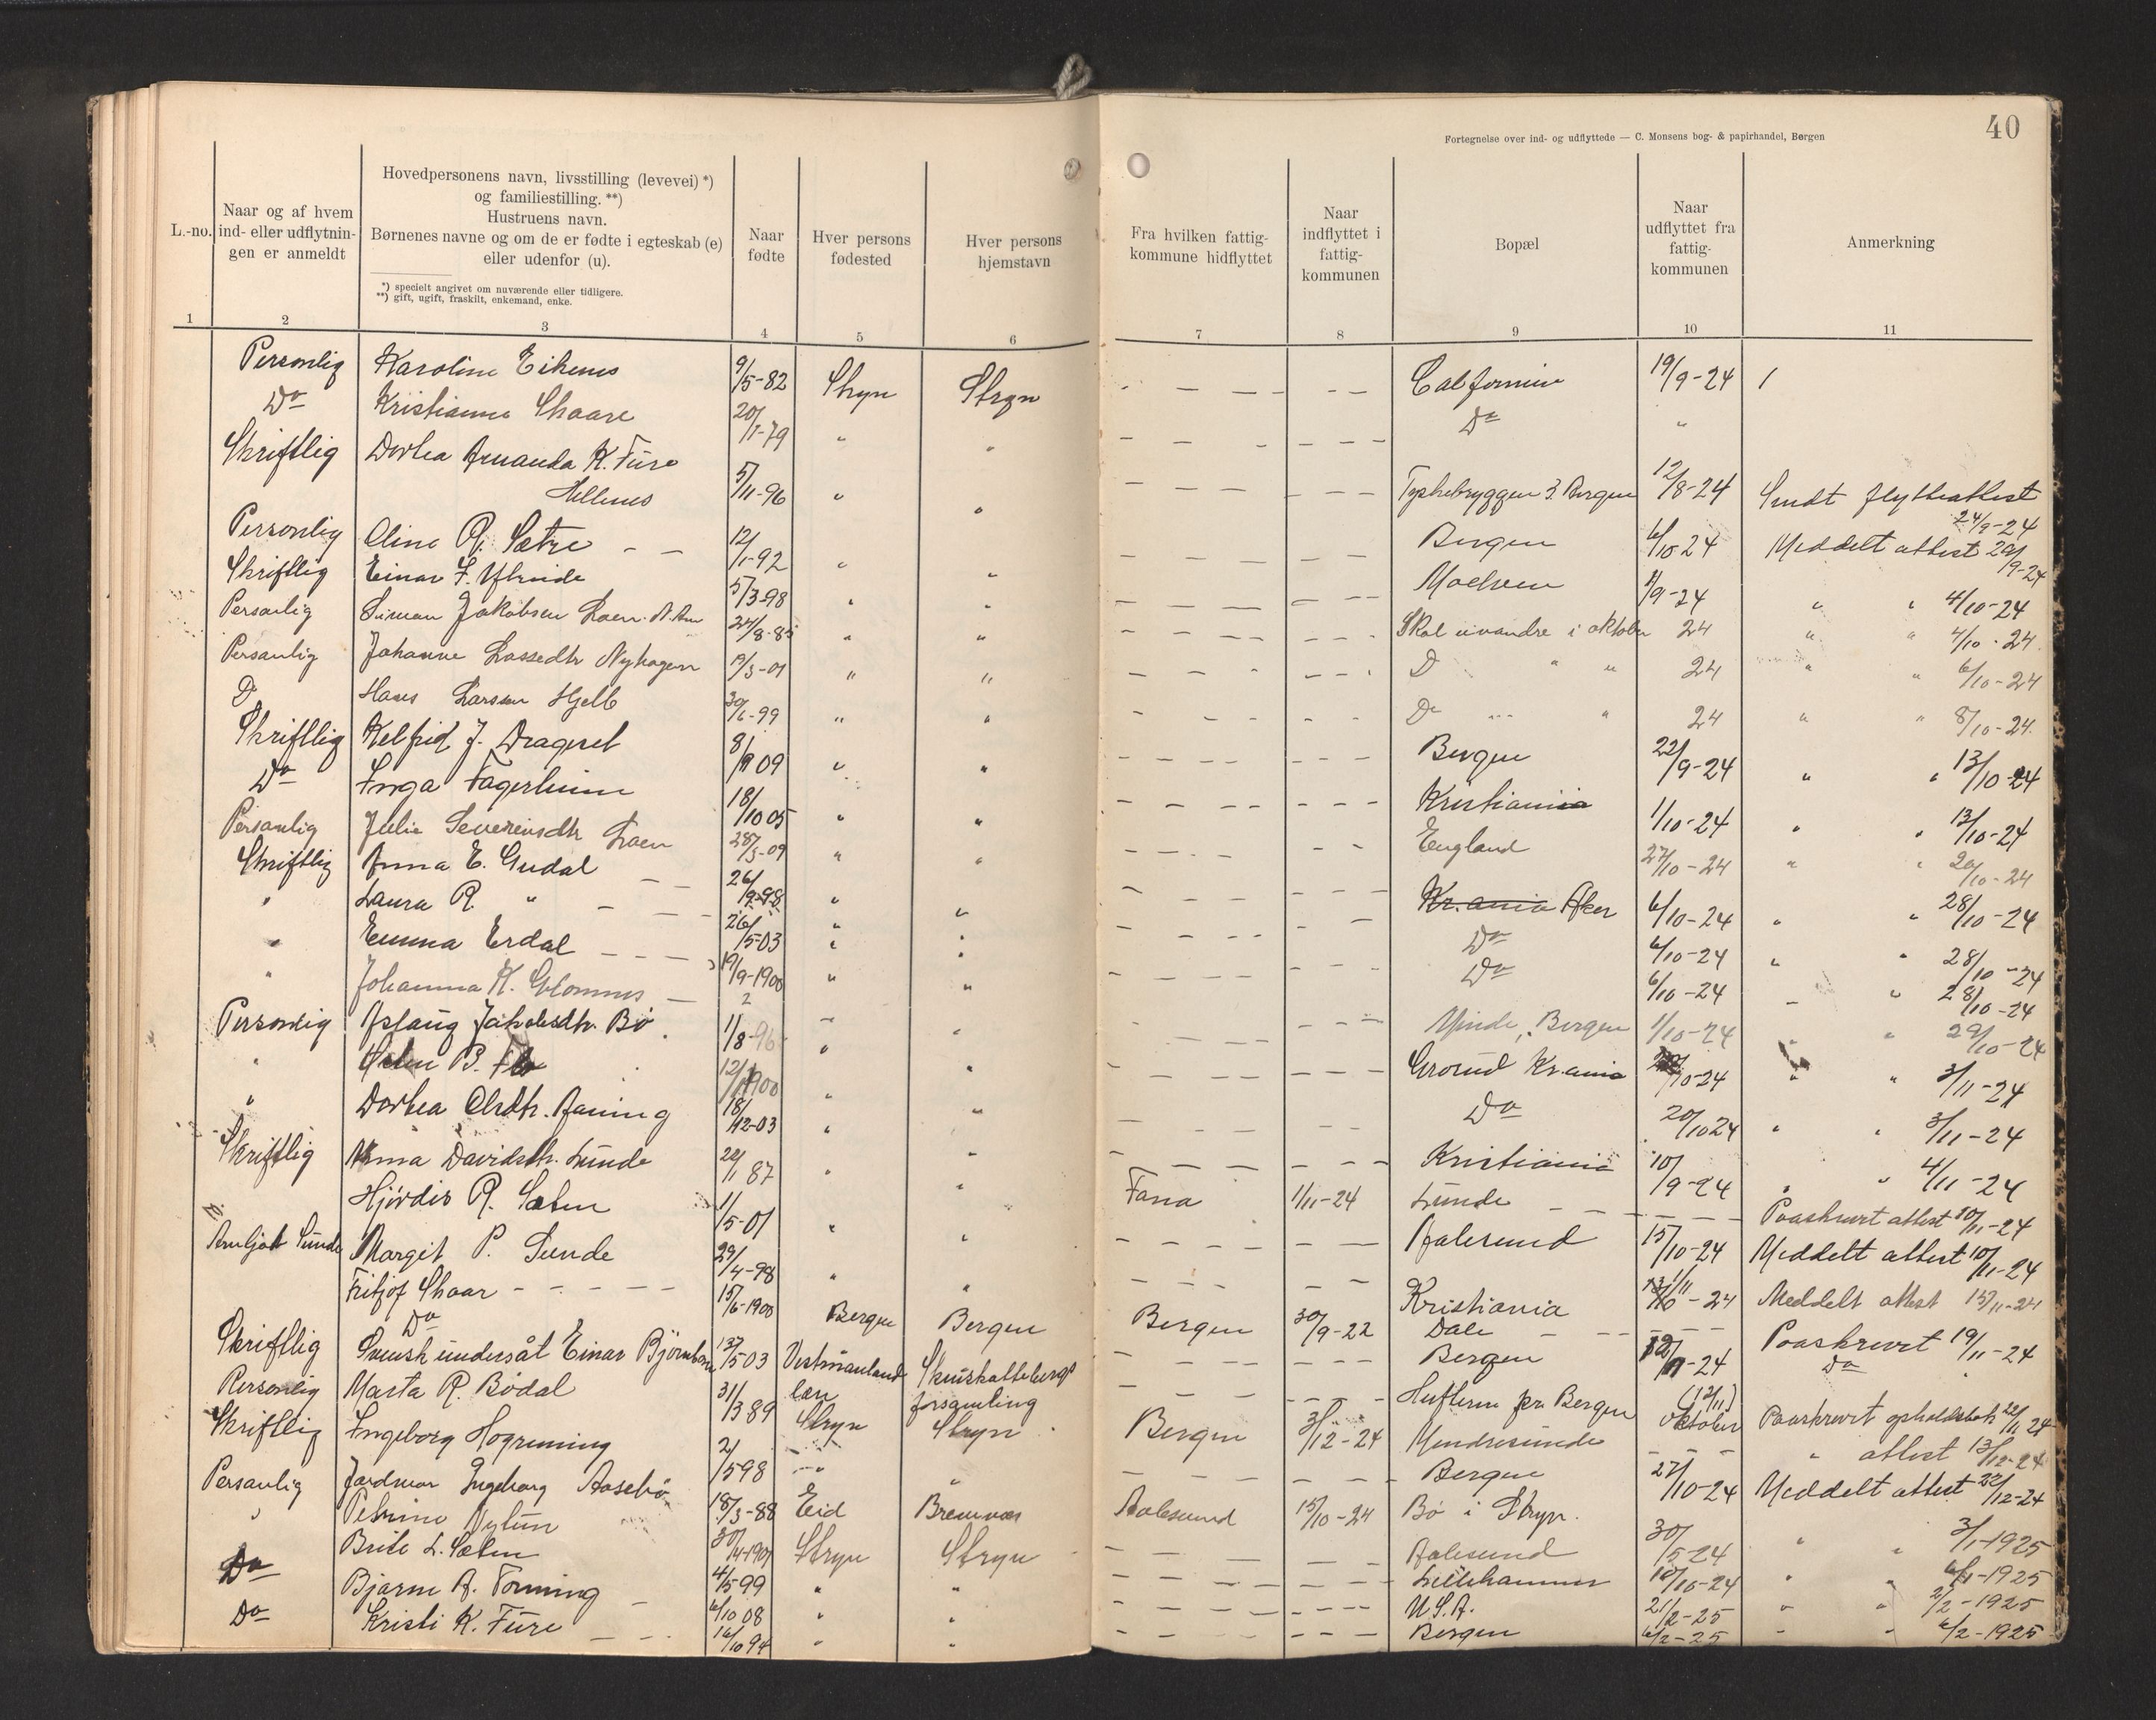 40
Fortegnelse over ind- og udflyttede — C. Monsens bog- & papirhandel, Bergen
L.-no.
Naar og af hvem ind- eller udflytningen er anmeldt
Hovedpersonens navn, livsstilling (levevei) *)
og familiestilling. **)
Hustruens navn.
Børnenes navne og om de er fødte i egteskab (e)
eller udenfor (u).
*) specielt angivet om nuværende eller tidligere.
**) gift, ugift, fraskilt, enkemand, enke.
Naar fødte
Hver persons fødested
Hver persons hjemstavn
Fra hvilken fattigkommune hidflyttet
Naar indflyttet i fattigkommunen
Bopæl
Naar udflyttet fra fattigkommunen
Anmerkning
1 2 3 4 5 6 7 8 9 10 11
Personlig Karoline Eikenes 9/5-82 Stryn Stryn - - - - - California 19/9-24 /
Do Kristianne Skaare 20/1-79 " " - - - - - - Do "
Skriftlig Dorthea Amanda K. Fure
Hellenes 5/11-96 " " - - - - - - Tyskebryggen 3. Bergen 12/8-24 Sendt flytteattest 24/9-24
Personlig Oline R. Sætre - - 12/1-92 " " - - - - - - Bergen 6/10 24 Meddelt attest 29/9-24
Skriftlig Einar F. 5/3-98 " " - - - - - - Moelven 1/9-24 " " 4/10-24
Personlig Simon Jakobsen Loen 24/8-85 " " - - - - - - Skal utvandre i oktober 24 " " 4/10-24
Personlig Johanne Lassedtr Nyhagen 19/3-01 " " - - - - - - D " " 24 " " 6/10-24
D Hans Larssen Hjelle 30/6-99 " " - - - - - - Do " " 24 " " 8/10-24
Skriftlig J. Drageset 8/9 09 " " - - - - - - Bergen 22/9-24 " " 13/10-24
Do Inga Fagerheim 18/10 05 " " - - - - - - Kristiania 1/10-24 " " 13/10-24
Personlig Julie Severinsdtr Loen 28/3-09 " " - - - - - England 27/10-24 " " 20/10-24
Skriftlig Anna E. Gudal - - 26/9-98 " " - - - - Kr.ania Aker 6/10-24 " " 28/10-24
" Laura R. " - - - 26/5-03 " " - - - - Do 6/10-24 " " 28/10-24
" Emma Erdal - - - - 19/9-1900 " " - - - - Do 6/10-24 - " 28/10-24
" Johanna K. Glomnes - " " - - - - Minde, Bergen 1/10-24 " " 29/10-24
Personlig Aslaug Jakobsdtr. Bø 1/8-96 " " - - - - - - Grorud Kr.ania /10-24 " " 3/11-24
" B. Flo 12/1900 " " - - - - Do 20/10 24 " " 3/11-24
" Dorthea Olsdtr. Aaning 18/12-03 " " - - - - - - Kristiania 10/9-24 " " 4/11-24
Skriftlig Anna Davidsdtr. Sunde 22/1 87 " " Fana 1/11-24 Sunde - - - - Paaskrevt attest 10/11-24
Hjørdis R. Sæten 1/5-01 " " - - - - - - Aalesund 15/10-24 Meddelt attest 10/11-24
Arnljot Sunde Margit P. Sunde 29/4-98 " " - - - - - - Kristiania 1/11-24 Meddelt attest 15/11-24
Fritjof Skaar - - - - - 15/6-1900 Bergen Bergen Bergen 30/9-22 Dale - - - - Paaskrevt 19/11-24
Do - - - - - - Bergen -24 Do
Skriftlig Svensk undersåt Einar 13/5 03 Vestmanland län Skinskatteberg forsamling - - - - - - pr. Bergen (12/11) oktober Paaskrevt opholdsbok 22/11 24
Personlig Marta R. Bødal 31/3 89 Stryn Stryn Bergen 3/12-24 Mindresunde - - - " attest 13/12-24
Skriftlig Ingeborg Hogrenning 2/5 98 " " - - - - - - Bergen 27/10-24 Meddelt attest 22/12-24
Personlig Ingeborg Aasebø 18/3-88 Eid Bremnes Aalesund 15/10-24 Bø i Stryn.
" Petrine Nylun 30/4-1901 Stryn Stryn - - - - - Aalesund 30/5-24 " " 3/1-1925
Brite L. Sæten 4/5 99 " " - - - - - - Lillehammer 10/10-24 " " 6/1-1925
Do Bjarne A. Tonning - 6/10 08 " " - - - - - - U.S.A. 21/2-25 " " 2/2-1925
Do Kristi K. Fure - - - 16/10 94 " " - - - - - - Bergen 6/2-25 " " 6/2-1925